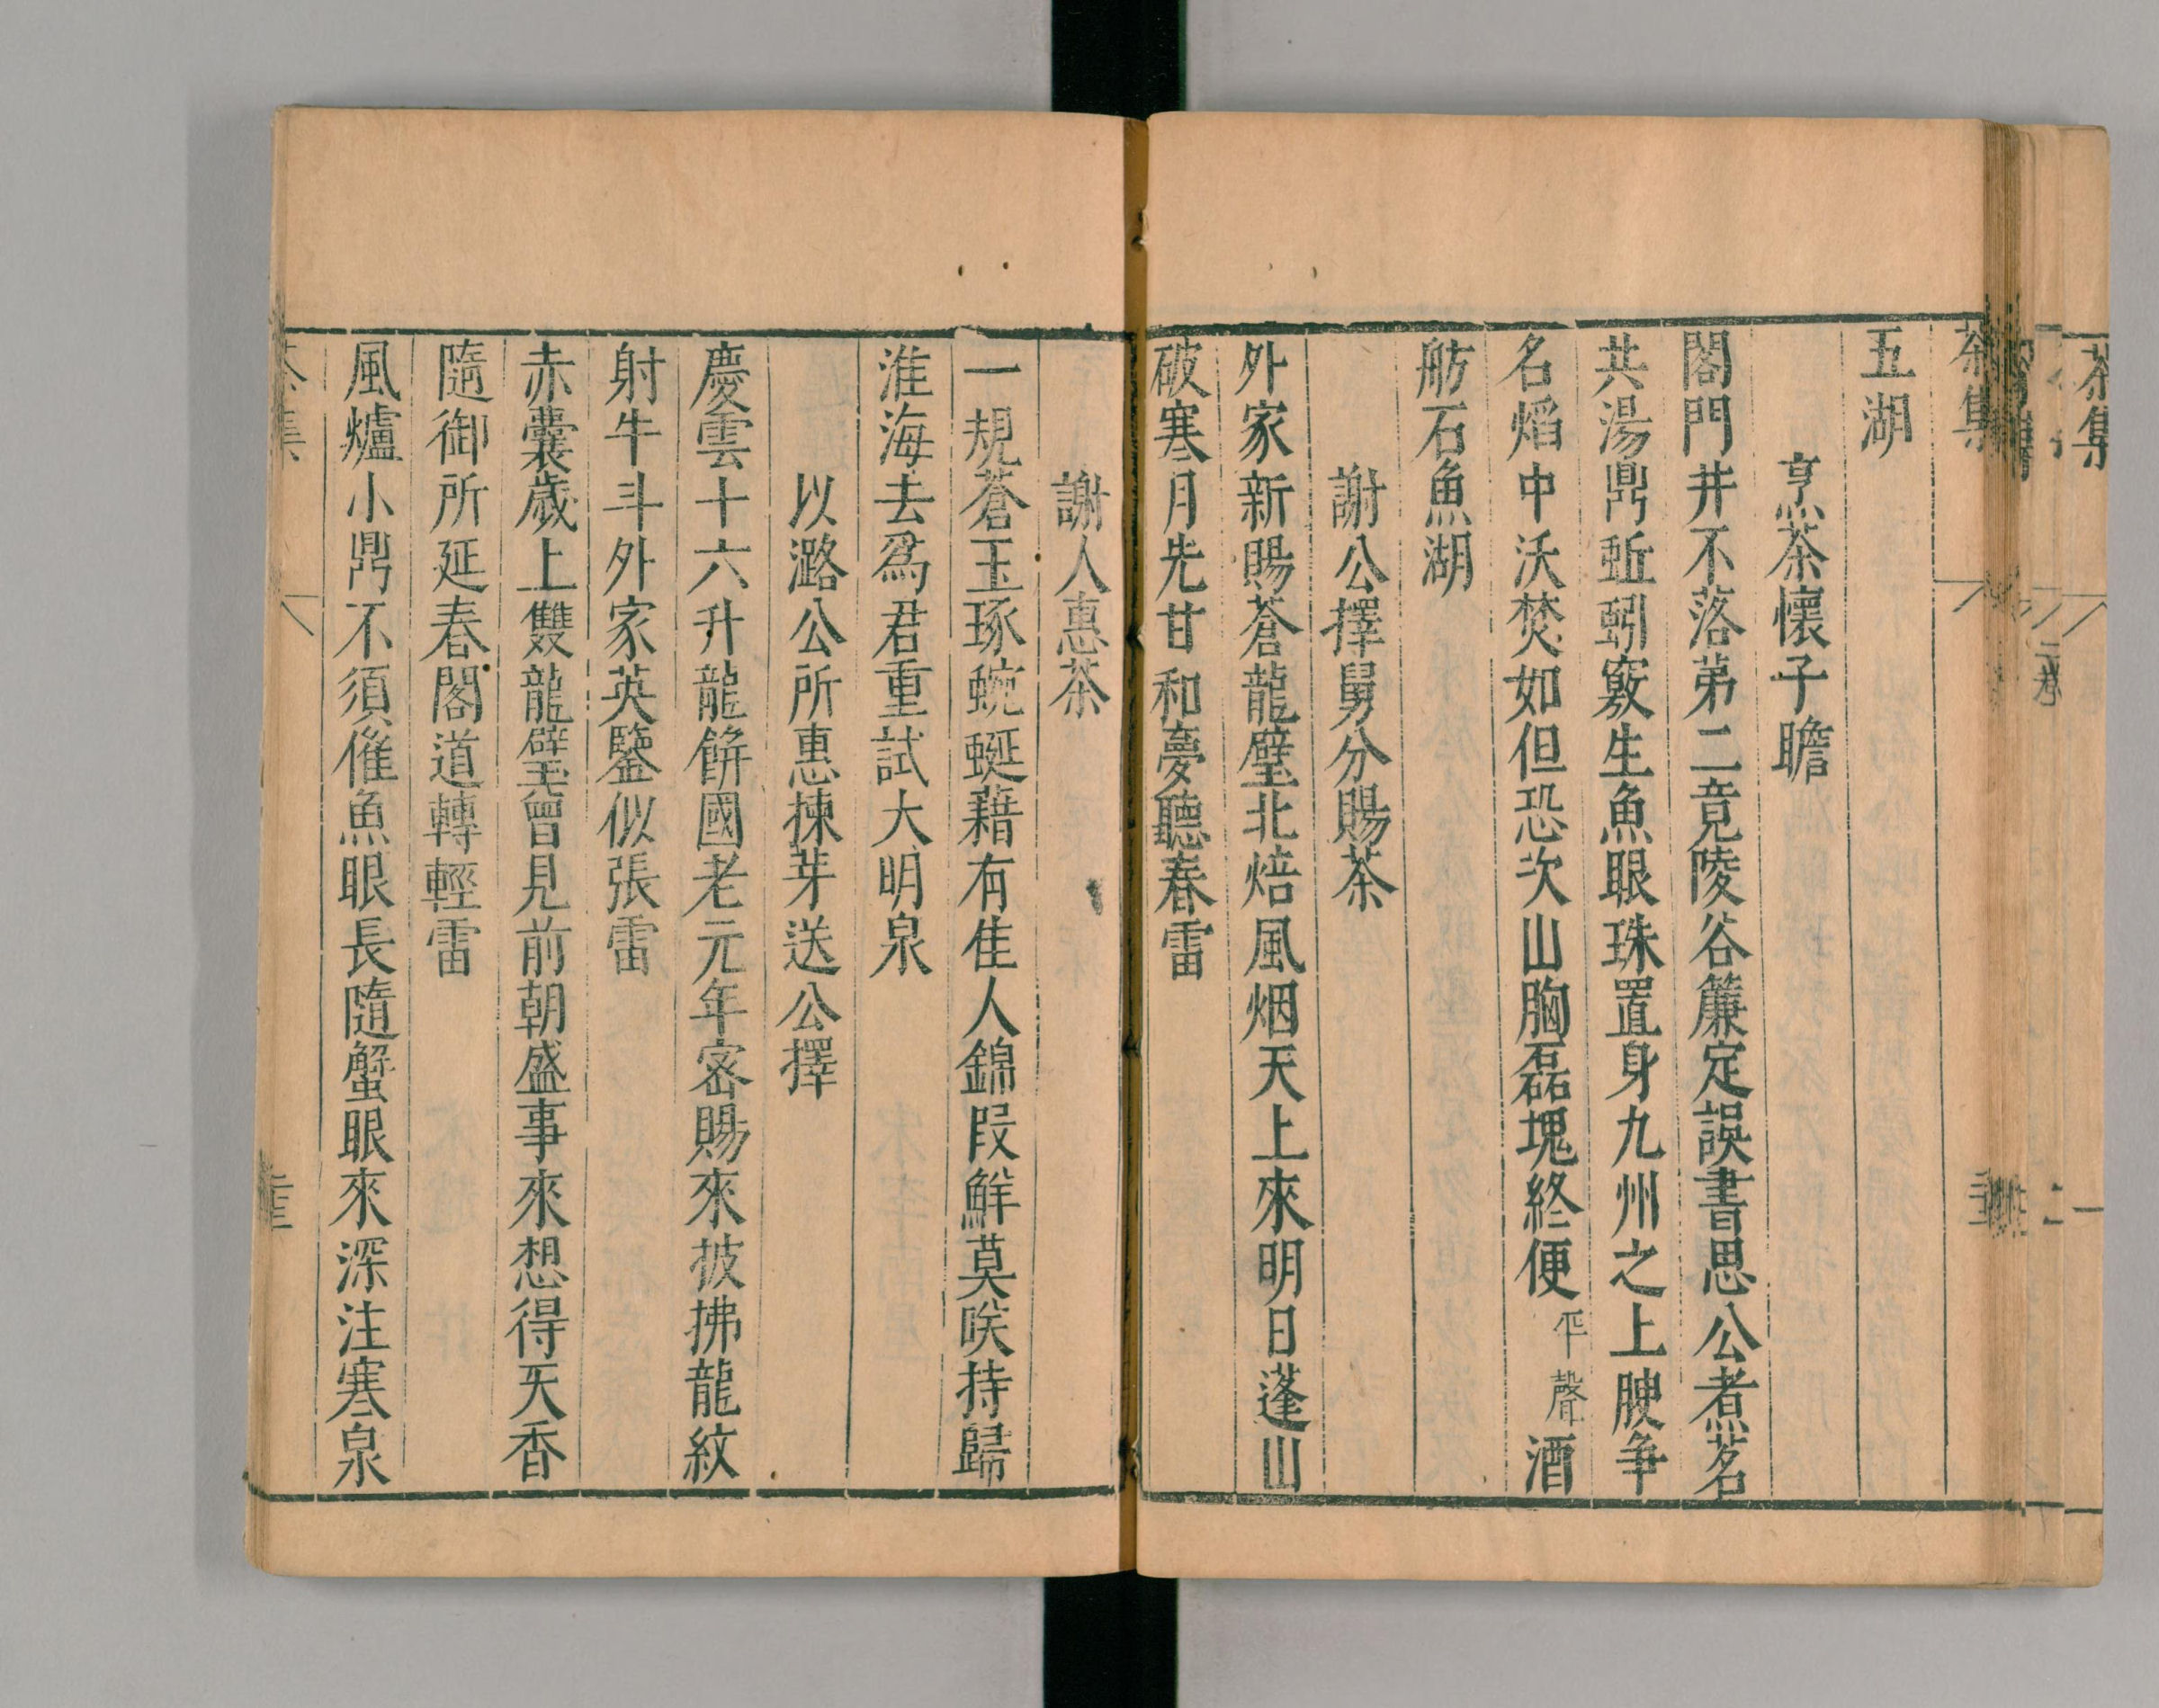 茶集
五湖
烹茶懷子瞻
閣門井不落第二竟陵谷簾定誤書思公煮茗
共湯鼎蚯蚓竅生魚眼珠置身九州之上腴爭
名焰中沃焚如但恐次山胸磊塊終便平聲酒
舫石魚湖
謝公擇舅分賜茶
外家新賜蒼龍璧北焙風烟天上來明日蓬山
破寒月先甘和夢聽春雷
謝人惠茶
一規蒼玉琢蜿蜒藉有佳人錦段鮮莫咲持歸
淮海去爲君重試大明泉
以潞公所惠揀芽送公擇
慶雲十六升龍餅國老元年密賜來披拂龍紋
射牛斗外家英鑒似張雷
赤囊歲上雙龍璧曾見前朝盛事來想得天香
隨御所延春閣道轉輕雷
風爐小鼎不須催魚眼長隨蟹眼來深注寒泉